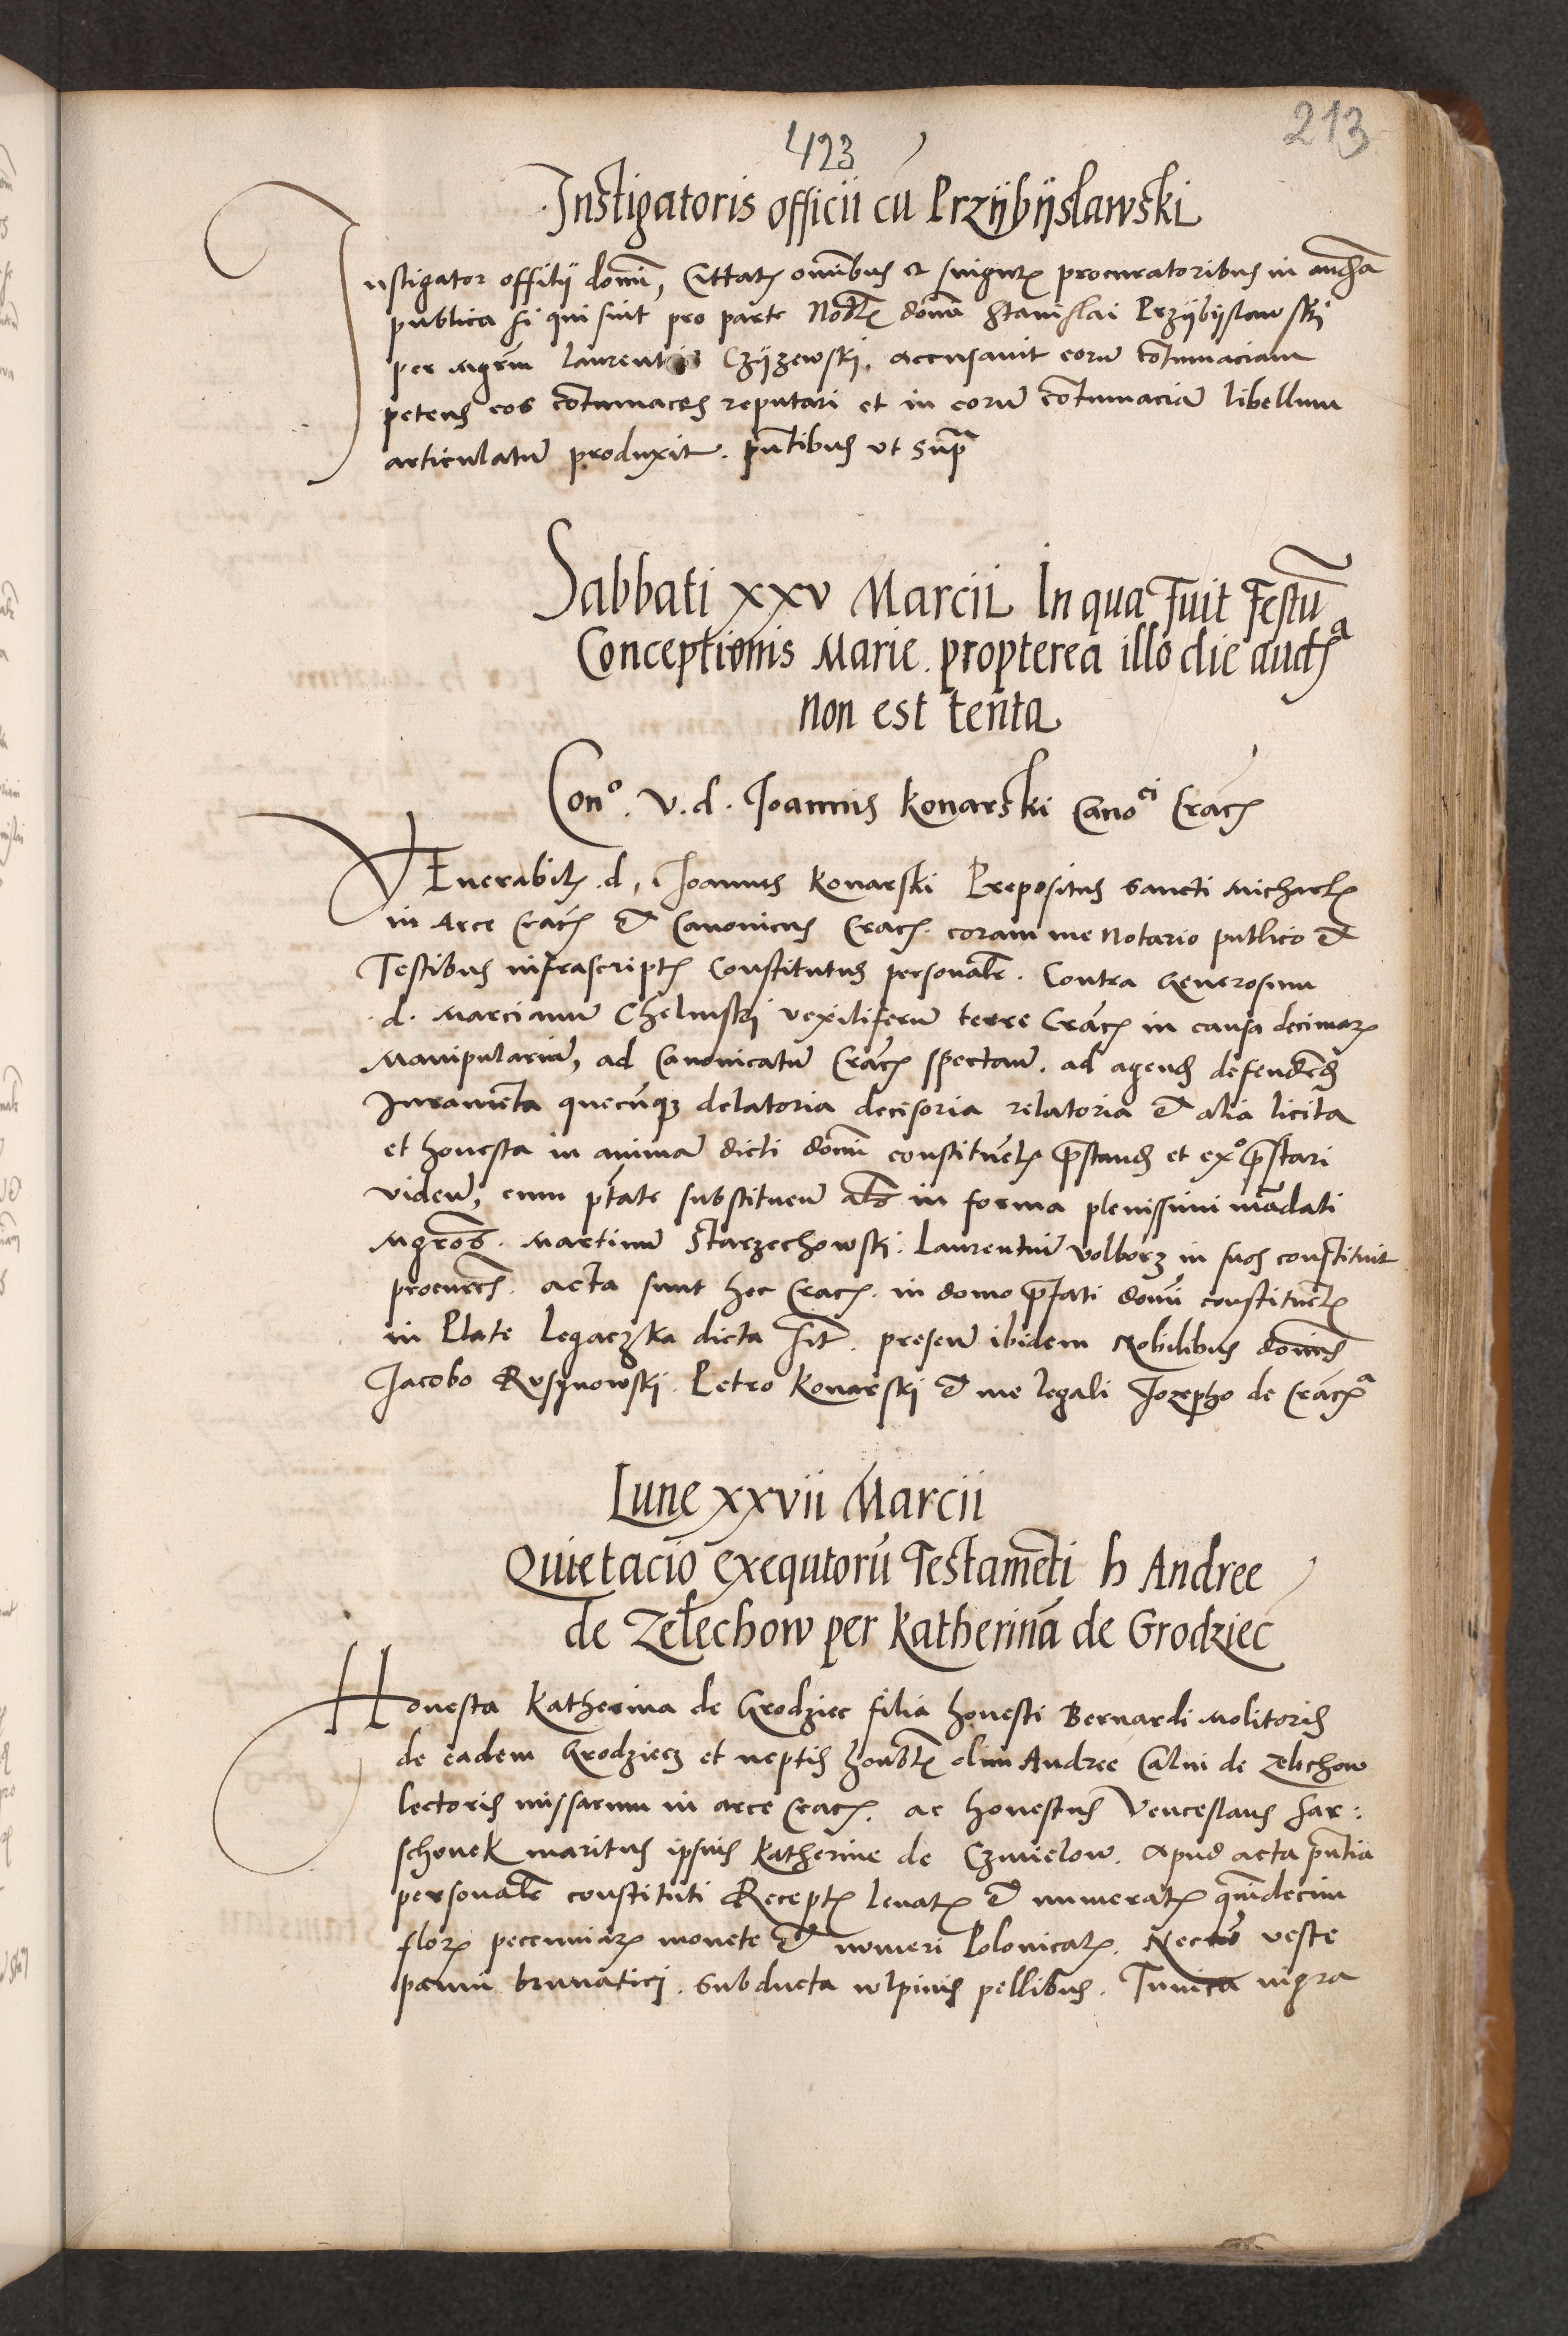 213
423
Instigatoris officii cũ Przÿbÿslawski
Instigator officij domĩ, Cittatꝭ omĩbus et singulꝭ procuratoribus in audiã
publica si qui sint pro parte Nobꝭ domi Stanislai Przÿbÿslawski
per Mgrm̃ Laurentiũ Czÿzewski. accusauit eorũ cõtumaciam
petens eos cõtumaces reputari et in eorũ cõtumaciã libellum
articulatũ produxit. pñtibus vt supra
Sabbati xxv Marcii In qua Fuit Festũ
Conceptionis Marie. propterea illo die audᵃ
non est tenta
Conᵒ. V. d. Joannis Konarski Canoᶜⁱ Cracꝭ
VEnerabilꝭ d, Joannes Konarski Prepositus sancti Michaelꝭ
in Arce Cracꝭ et Canonicus Cracꝭ. coram me Notario publico et
Testibus infrascriptꝭ Constitutus personalr̃. Contra Generosum
d. Marcianũ Chelmski vexiliferũ terre Cracꝭ in causa decimarꝭ
Manipulariũ, ad Canonicatũ Cracꝭ spectañ. ad agend̃ defendend̃
Juramẽta quecũqꝫ delatoria decisoria relatoria et alia licita
et honesta in animã dicti domĩ constituẽtꝭ p̃stand̃ et exᵒ p̃stari
videñ, cum ptãte substituen̄ als̃ in forma plenissimi mãdati
Mgrõs. Martinũ Starzechowski. Laurentiũ Volborz in suos constituit
procurẽs. acta sunt hec Cracꝭ. in domo p̃fati domĩ constituẽtꝭ
in Plate Legaczka dicta sit̃. preseñ ibidem Nobilibus dominis
Jacobo Rusÿnowski. Petro Konarski et me legali Jozepho de Cracꝭᵃ
Lune xxvii Marcii
Quietacio exequtorũ Testamẽti h Andree
de Zelechow per Katherinã de Grodziec
Honesta Katherina de Grodziec filia honesti Bernardi Molitoris
de eadem Grodziecz et neptis honorbꝭ olim Andree Calui de Zelechow
lectoris missarum in arce Cracꝭ. ac honestus Venceslaus Sar:
schonek maritus ipsius Katherine de Czmielow. Apud acta pñtia
personalr̃ constituti Receptꝭ leuatꝭ et numeratꝭ quĩdecim
florꝭ pecuniarꝭ monete et numeri Polonicalꝭ. Necnõ veste
panni brunatici. subducta wlpinis pellibus. Tunica nigra